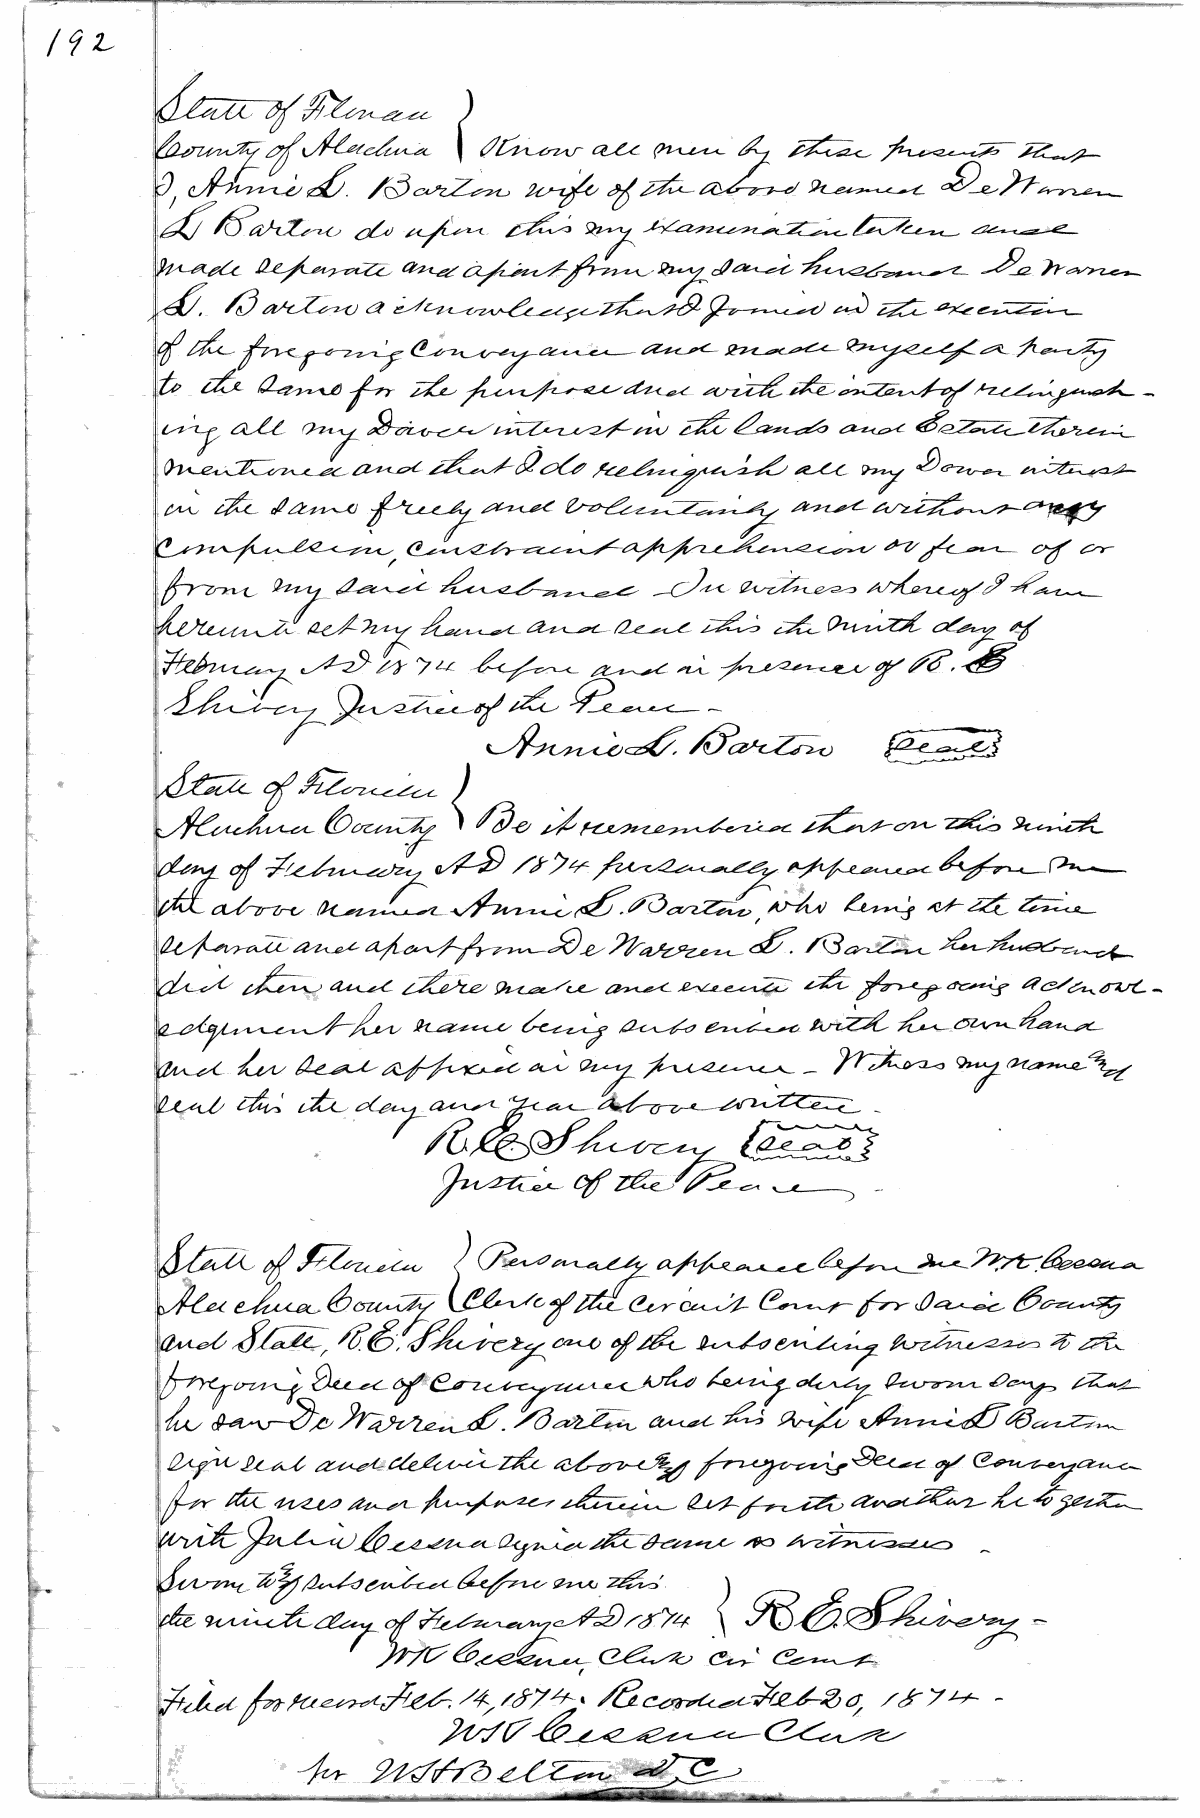 192
State of Florida
County of Alachua } Know all men by these presents that
I, Annie L. Barton wife of the above named De Warren
L Barton do upon this my examination taken and
made separate and apart from my said husband De Warren
L. Barton acknowledge that I joined in the execution
of the foregoing Conveyance and made myself a party
to the same for the purpose and with the intent of relinquish-
ing all my Dower interest in the lands and Estate therein
mentioned and that I do relinquish all my Dower interest
in the same freely and voluntarily and without any
compulsion, constraint apprehension or fear of or
from my said husband In witness whereof I have
hereunto set my hand and seal this the ninth day of
February AD 1874 before and in presence of R. E
Shivery Justice of the Peace -
Annie L. Barton Seal
State of Florida
Alachua County } Be it remembered that on this ninth
day of February AD 1874 personally appeared before me
the above named Annie L. Barton, who being at the time
separate and apart from De Warren L. Barton her husband
did then and there make and execute the foregoing acknowl-
edgement her name being subscribed with her own hand
and her seal affixed in my presence - Witness my name and
seal this the day and year above written -
R. E. Shivery Seal
Justice of the Peace
State of Florida } Personally appeared before me W.K. Cessna
Alachua County Clerk of the Circuit Court for said County
and State, R.E. Shivery one of the subscribing witnesses to the
foregoing Deed of Conveyance who being duly sworn says that
he saw De Warren L. Barton and his wife Annie L Barton
sign seal and deliver the above & foregoing Deed of Conveyance
for the uses and purposes therein set forth and that he together
with Julia Cessna signed the same as witnesses -
Sworn to & subscribed before me this
the ninth day of February AD 1874 } R. E. Shivery -
WK Cessna, Clerk Cir Court
Filed for record Feb. 14, 1874. Recorded Feb 20, 1874 -
WK Cessna Clerk
per WH Belton D,C